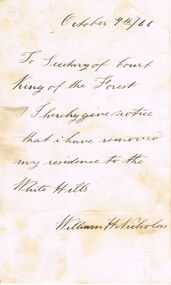 October 9th/66
To Secretary of Court
King of the Forest
I hereby give notice
that i have removed
my residence to the
White Hills
William H Nicholas